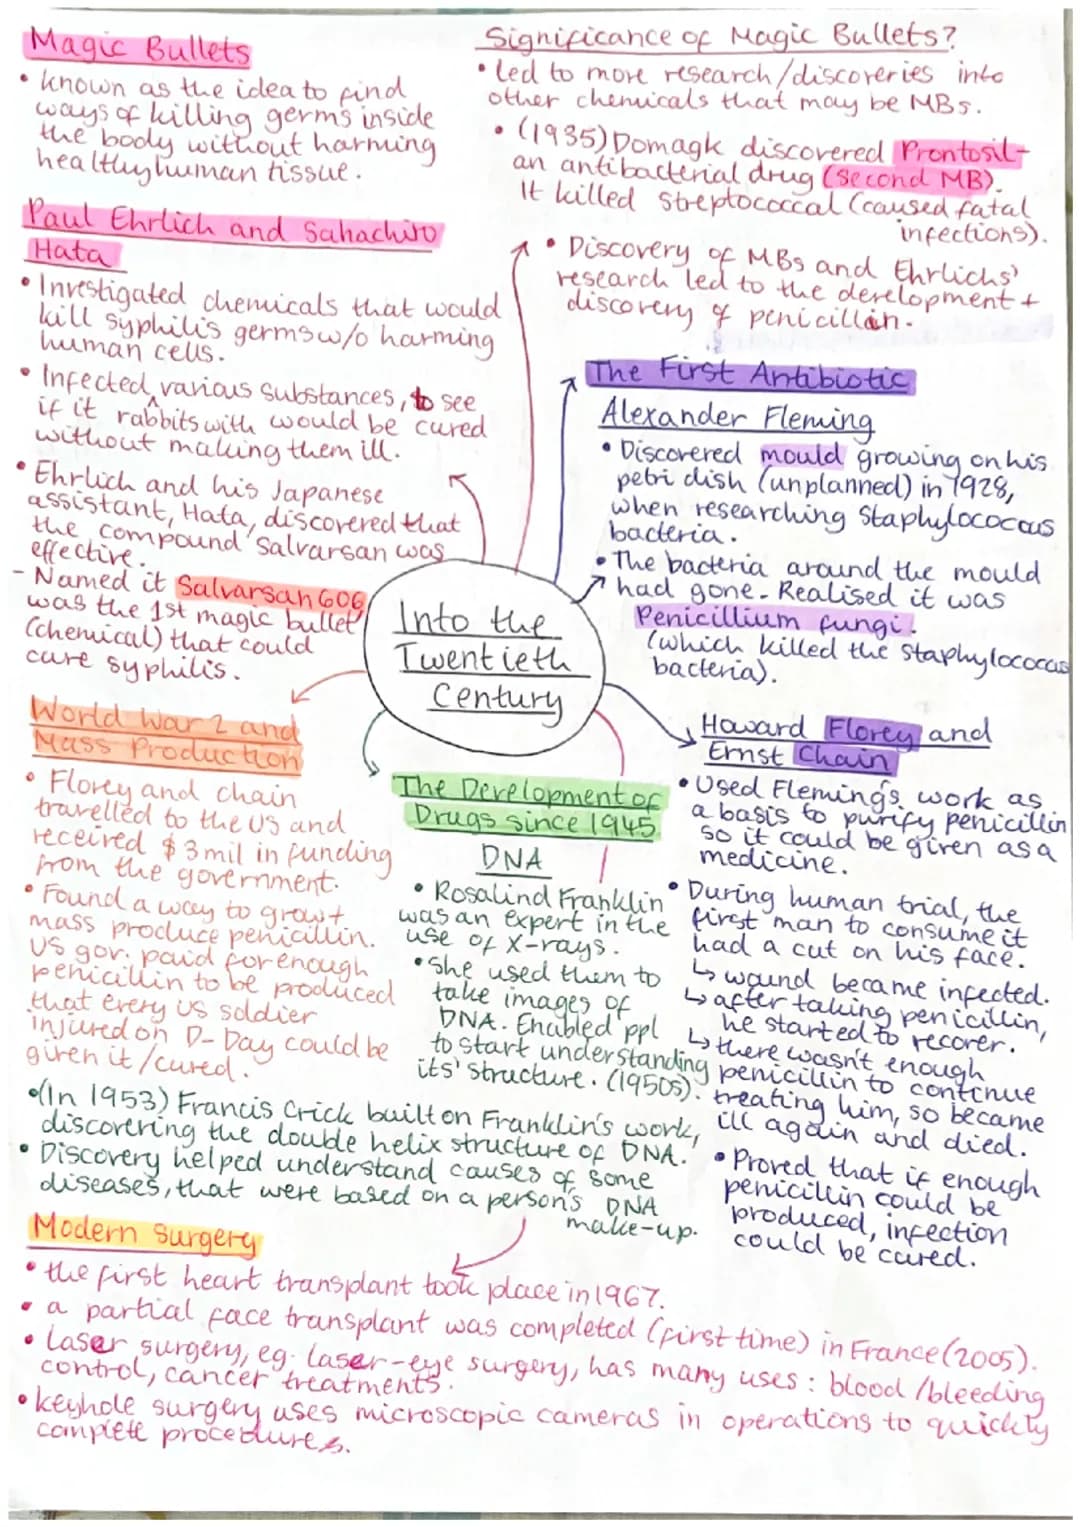 Magic Bullets
• known as the idea to find
ways of killing germs inside
the body without harming
healthy human tissue.
Paul Ehrlich and Sahachiro
Hata
• Investigated chemicals that would
kill syphilis germs w/o harming
human cells.
• Infected ^ various substances, to see
if it rabbits with would be cured
without making them ill.
• Ehrlich and his Japanese
assistant, Hata, discovered that
the compound Salvarsan was
effective.
- Named it Salvarsan 606,
was the 1st magic bullet
(chemical) that could
cure syphilis.
Significance of Magic Bullets?
• Led to more research/discoveries into
other chemicals that may be MBs.
• (1935) Domagk discovered Prontosil-
an antibacterial drug (second MB).
It killed Streptococcal (caused fatal
infections).
• Discovery of MBs and Ehrlichs'
research led to the development +
discovery of penicillin.
The First Antibiotic
Alexander Fleming
• Discovered mould growing on his
petri dish (unplanned) in 1928,
when researching Staphylococcus
bacteria.
• The bacteria around the mould
had gone. Realised it was
Penicillium fungi.
(which killed the staphylococcus
bacteria).
Into the
Twentieth
Century
Howard Florey and
Ernst Chain
• Used Fleming's work as
a basis to purify penicillin
so it could be given as a
medicine.
• During human trial, the
first man to consume it
had a cut on his face.
↳ wound became infected.
↳ after taking penicillin,
he started to recover.
↳ there wasn't enough
penicillin to continue
treating him, so became
ill again and died.
• Proved that if enough
penicillin could be
produced, infection
could be cured.
World War 2 and
Mass Production
• Florey and chain
travelled to the US and
received $3mil in funding
from the government.
• Found a way to grow +
mass produce penicillin.
US gov. paid for enough
penicillin to be produced
that every US soldier
injured on D-Day could be
given it/cured.
The Development of
Drugs since 1945
DNA
• Rosalind Franklin
was an expert in the
use of X-rays.
• She used them to
take images of
DNA. Enabled ppl
to start understanding
its' structure. (1950s).
• (In 1953) Francis Crick built on Franklin's work,
discovering the double helix structure of DNA.
• Discovery helped understand causes of some
diseases, that were based on a person's DNA
make-up.
Modern Surgery
• the first heart transplant took place in 1967.
• a partial face transplant was completed (first time) in France (2005).
• Laser surgery, eg. laser-eye surgery, has many uses: blood/bleeding
control, cancer treatments.
• keyhole surgery uses microscopic cameras in operations to quickly
complete procedures.